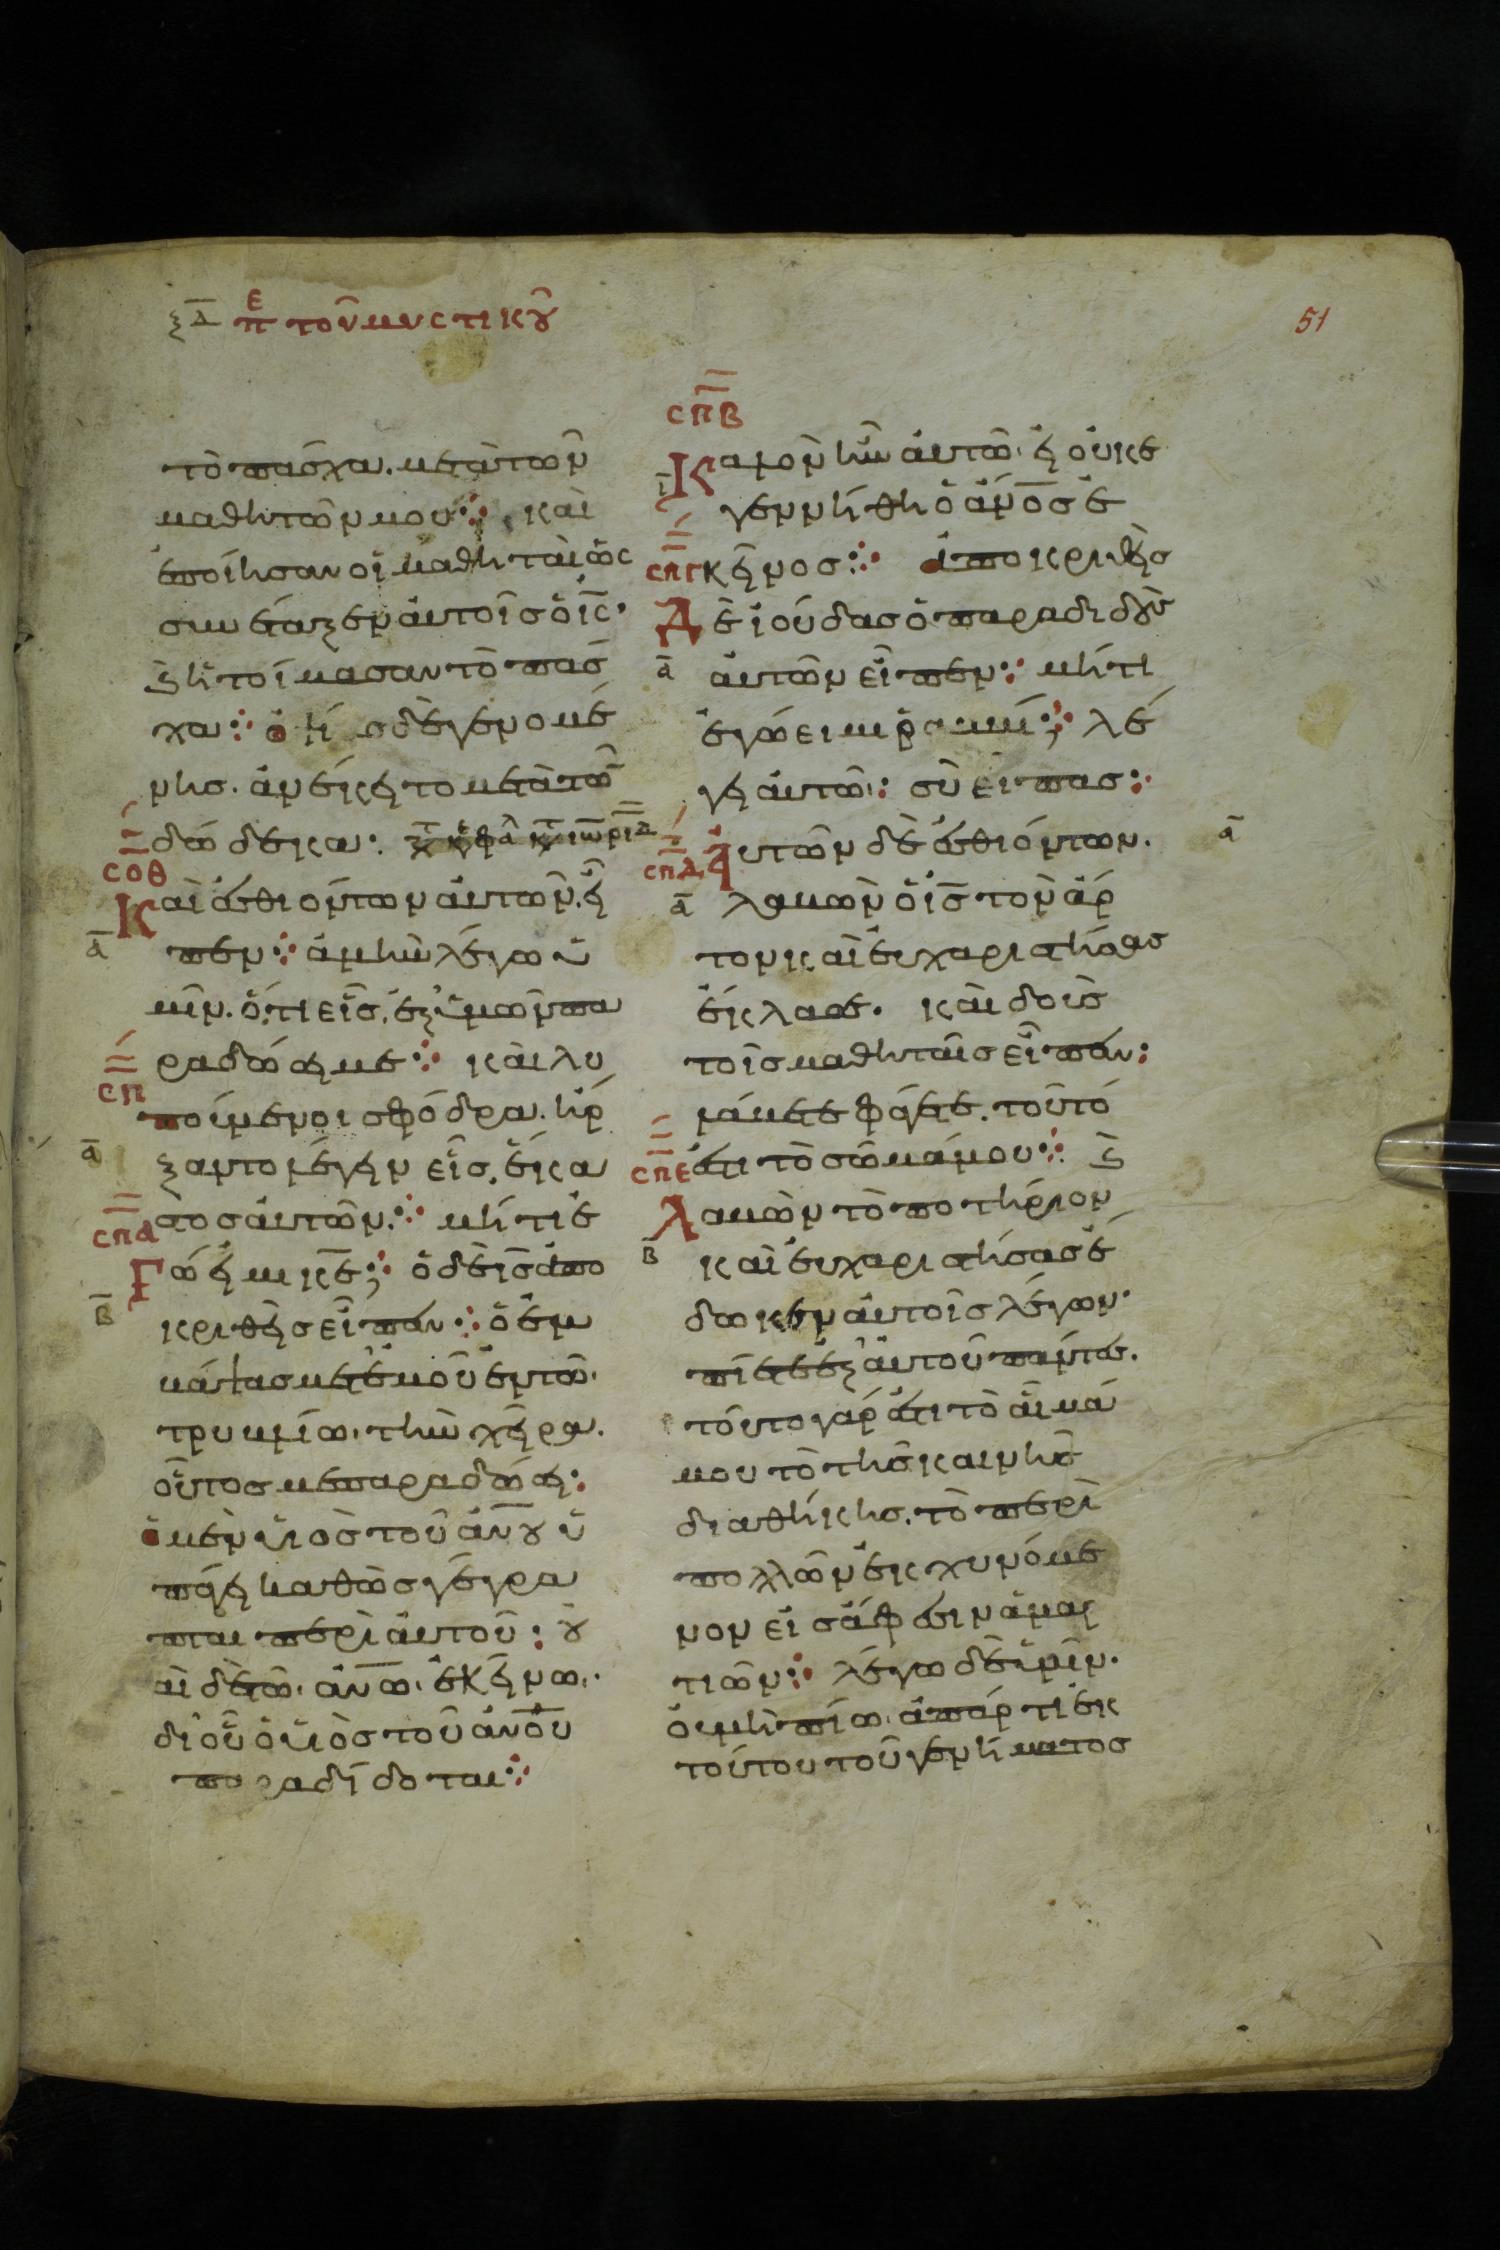 ξδ πε τοῦ μυστικοῦ
51
τὸ πάσχα. μετὰ τῶν
μαθητῶν μου· καὶ
ἐποίησαν οἱ μαθηταὶ ὡς
συνέταξεν αὐτοῖς ὁ ις·
καὶ ἡτοίμασαν τὸ πάσ
χα· ὀψίας δὲ γενομέ
νης. ἀνέκειτο μετὰ τῶ
δώδεκα·
σοθ
Καὶ ἐσθιόντων αὐτῶν. εἶ
α
πεν· ἀμὴν λέγω ὑ
μῖν. ὅτι εἷς, ἐξ ὑμῶν πα
ραδώσει με· καὶ λυ
σπ
πούμενοι σφόδρα. ἤρ
α
ξαντο λέγειν εἷς, ἕκα
στος αὐτῶν· μήτι ἐ
σπα
Γώ εἰμι κε; ὁ δὲ ις ἀπο
β
κριθεὶς εἶπεν· ὁ ἐμ
βάψας μετ' ἐμοῦ ἐν τῶ
τρυβλίω. τὴν χεῖρα.
οὗτός με παραδώσει·
ὁ μὲν υἱὸς τοῦ ανου ὑ
πάγει καθὼς γέγρα
πται περὶ αὐτοῦ· οὐ
αὶ δὲ τῶ ανω ἐκείνω·
δι' οὗ ὁ υἱὸς τοῦ ανου
παραδίδοται·
σπβ
Καλὸν ἦν αὐτῶ· εἰ οὐκ ἐ
ι
γεννήθη ὁ ανος ἐ
σπγ
κεῖνος· ἀποκριθεὶς
Δὲ ἰούδας ὁ παραδιδοὺς
α
αὐτὸν εἶπεν· μήτι
ἐγώ εἰμι ῥαββί; λέ
γει αὐτῶ· σὺ εἶπας·
σπδ
Αὐτῶν δὲ ἐσθιόντων.
α
α
λαβὼν ὁ ις τὸν ἄρ
τον καὶ εὐχαριστήσας
ἔκλασε. καὶ δοὺς
τοῖς μαθηταῖς εἶπεν·
λάβετε φάγετε. τοῦτό
σπε
ἐστι τὸ σῶμά μου· καὶ
Λαβὼν τὸ ποτήριον
β
καὶ εὐχαριστήσας ἔ
δωκεν αὐτοῖς λέγων·
πίετε ἐξ αὐτοῦ πάντες.
τοῦτο γάρ ἐστι τὸ αἷμά
μου τὸ τῆς καινῆς
διαθήκης. τὸ περὶ
πολλῶν ἐκχυνόμε
νον εἰς ἄφεσιν ἁμαρ
τιῶν· λέγω δὲ ὑμῖν.
οὐ μὴ πίω ἀπάρτι ἐκ
τούτου τοῦ γενήματος